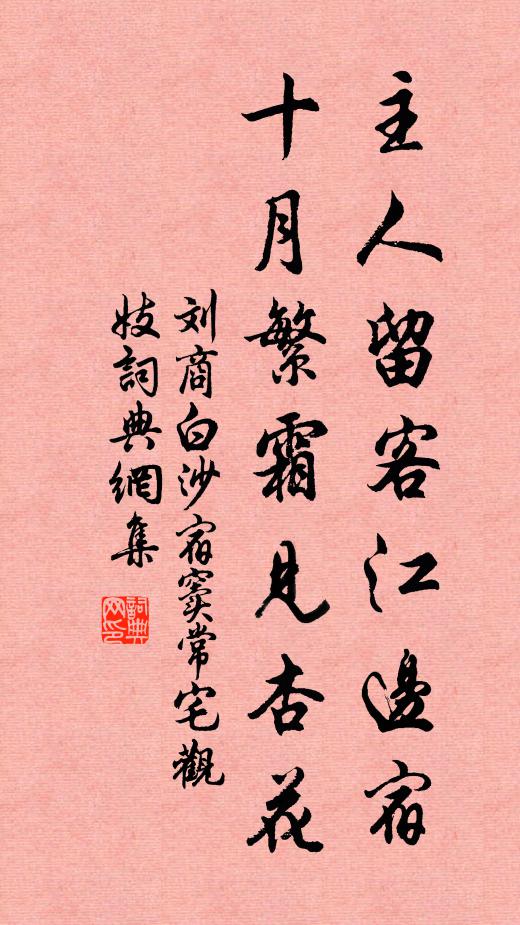 主人留客江邊宿
十月繁霜見杏花
刘商白沙宿窦常宅觀
妓詞典網集
詞典网印